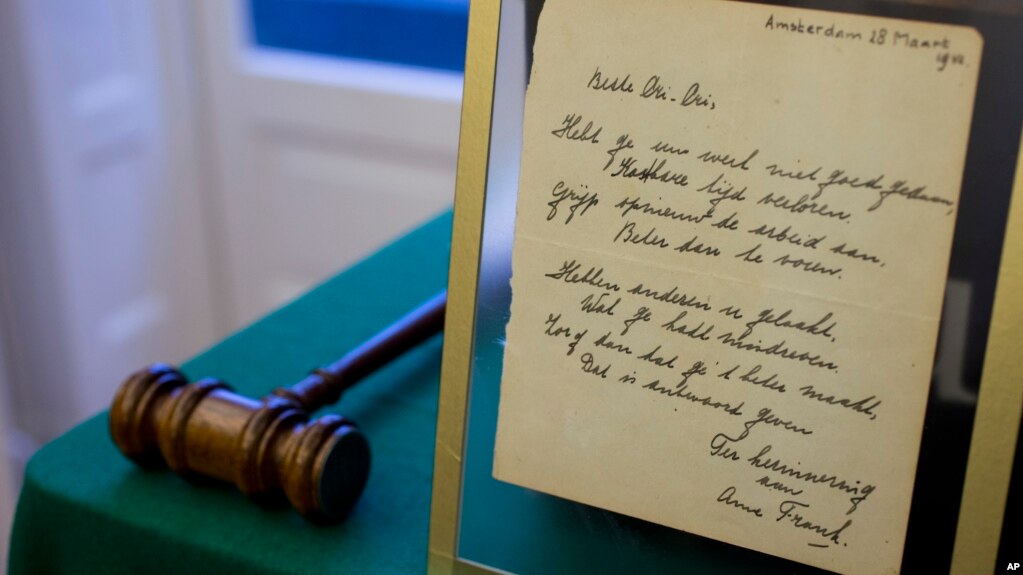 Amsterdam 28 Maart
1942.
Beste Cri-Cri,
Hebt ge uw werk niet goed gedaan,
Kostbare tijd verloren.
Grijp opnieuw de arbeid aan,
Beter dan te voren.
Hebben anderen u gelaakt,
Wat ge hadt misdreven.
Zorg dan dat ge 't beter maakt,
Dat is antwoord geven
Ter herinnering
aan
Anne Frank.
AP